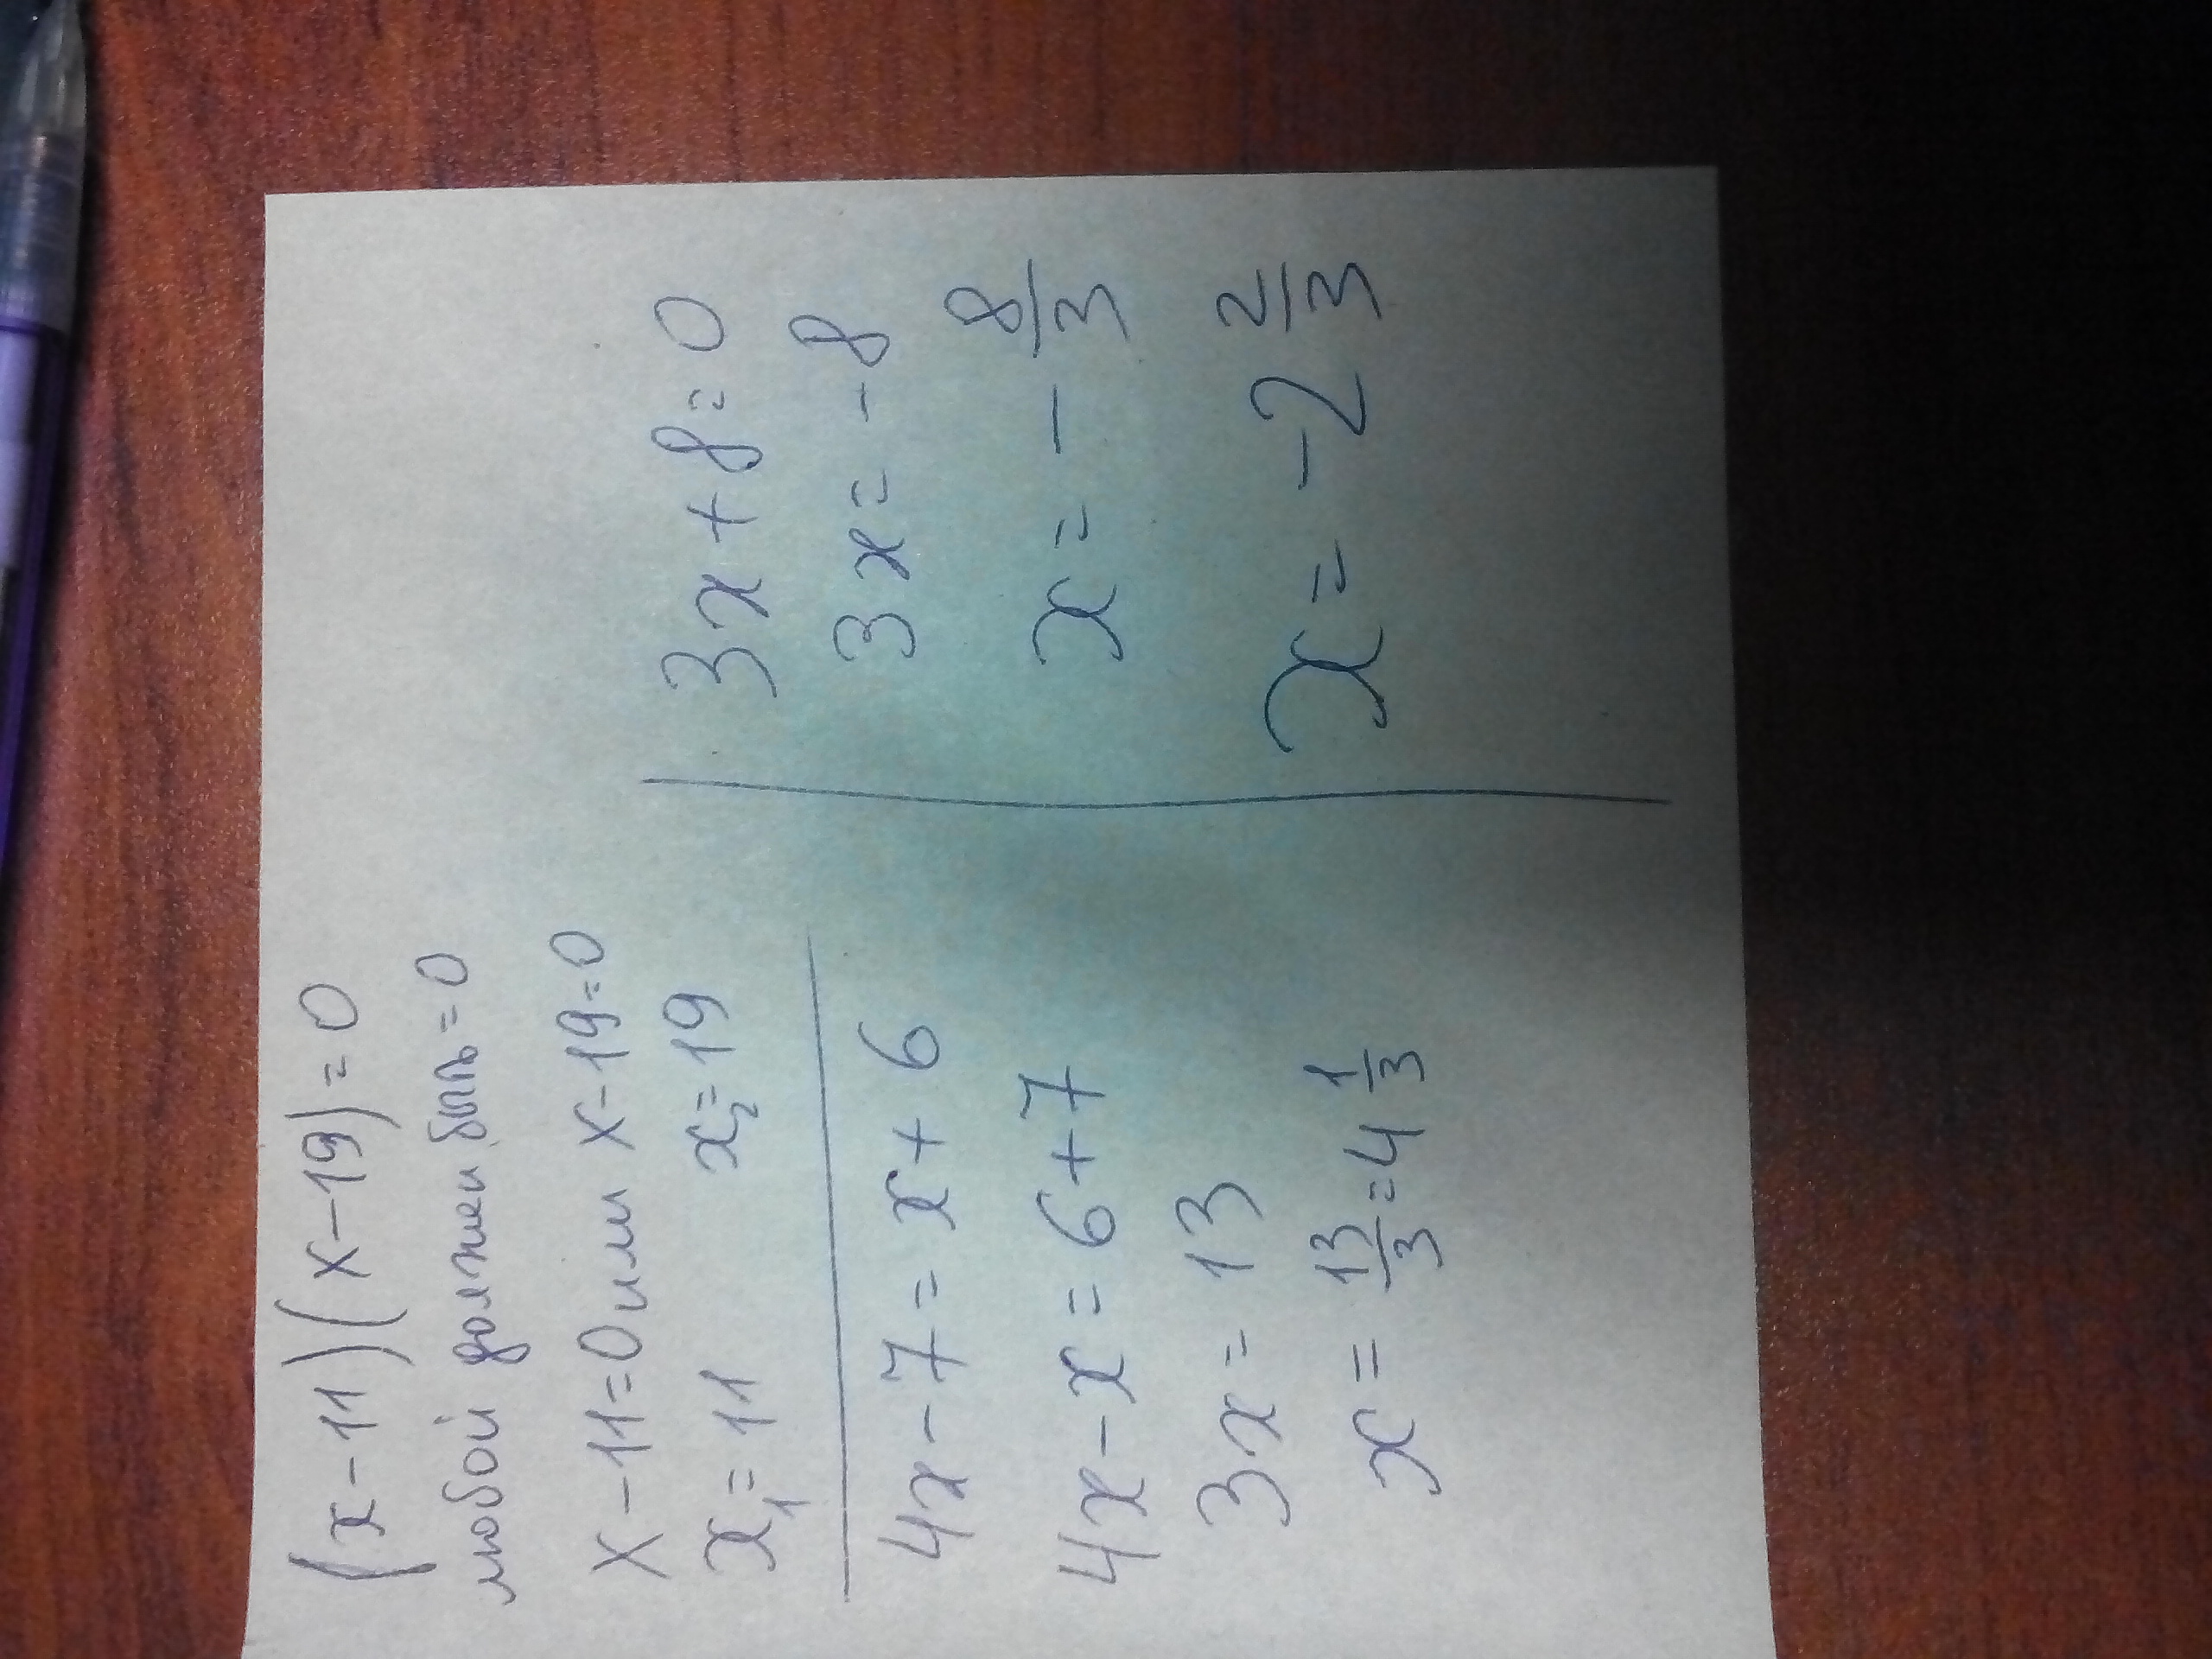 (x-11)(x-19)=0
любой должен быть=0
x-11=0 или x-19=0
x₁=11 x₂=19
4x-7=x+6
4x-x=6+7
3x=13
x=13/3=4 1/3
3x+8=0
3x=-8
x=-8/3
x=-2 2/3